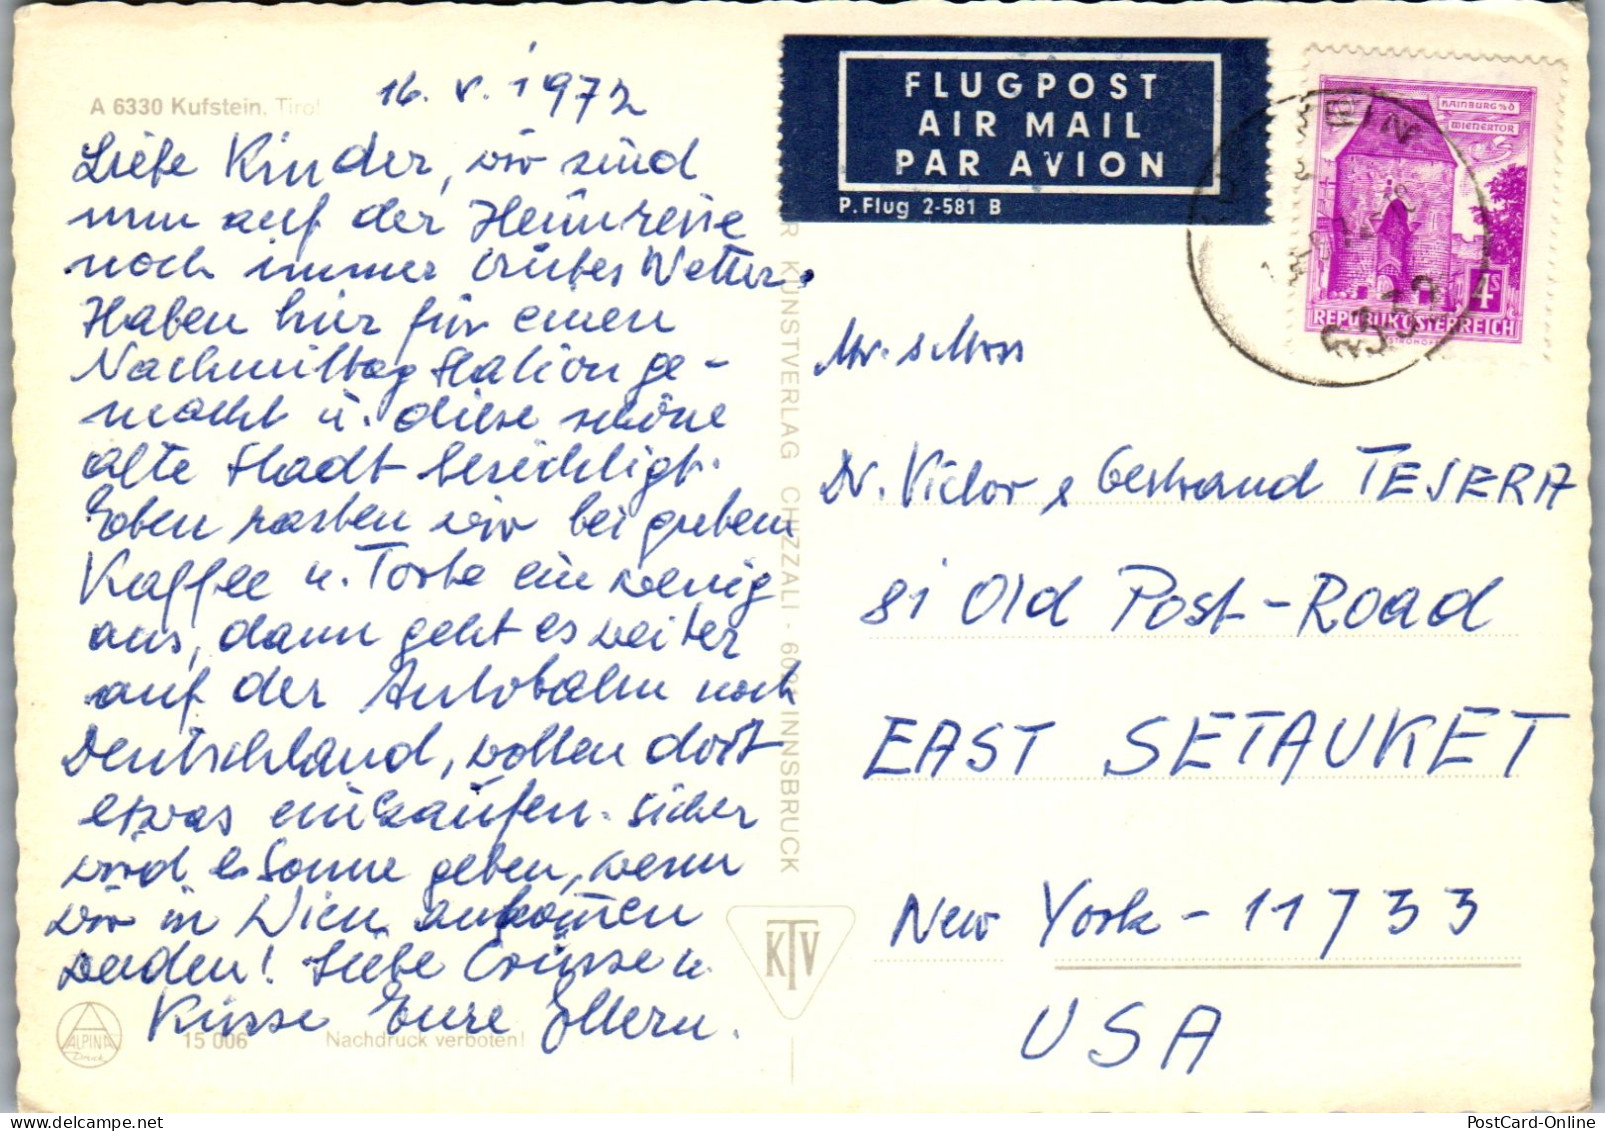 A 6330 Kufstein, Tirol
16. V. 1972
Liebe Kinder, wir sind
nun auf der Heimreise
noch immer trübes Wetter.
Haben hier für einen
Nachmittag Station ge-
macht u. diese schöne
alte Stadt besichtigt.
Eben rasten wir bei gutem
Kaffee u. Torte ein wenig
aus, dann geht es weiter
auf der Autobahn nach
Deutschland, wollen dort
etwas einkaufen. Sicher
wird es Sonne geben, wenn
wir in Wien ankommen
werden! Liebe Grüsse u.
Küsse Eure Eltern.
15 006 Nachdruck verboten!
ALPINA
Druck
KUNSTVERLAG CHIZZALI · INNSBRUCK
KTV
FLUGPOST
AIR MAIL
PAR AVION
P. Flug 2-581 B
HAINBURG N.Ö
WIENERTOR
4S
REPUBLIK ÖSTERREICH
Mr. & Mrss
Dr. Victor & Gertraud TEJERA
81 Old Post-Road
EAST SETAUKET
New York - 11733
USA
PostCard-Online